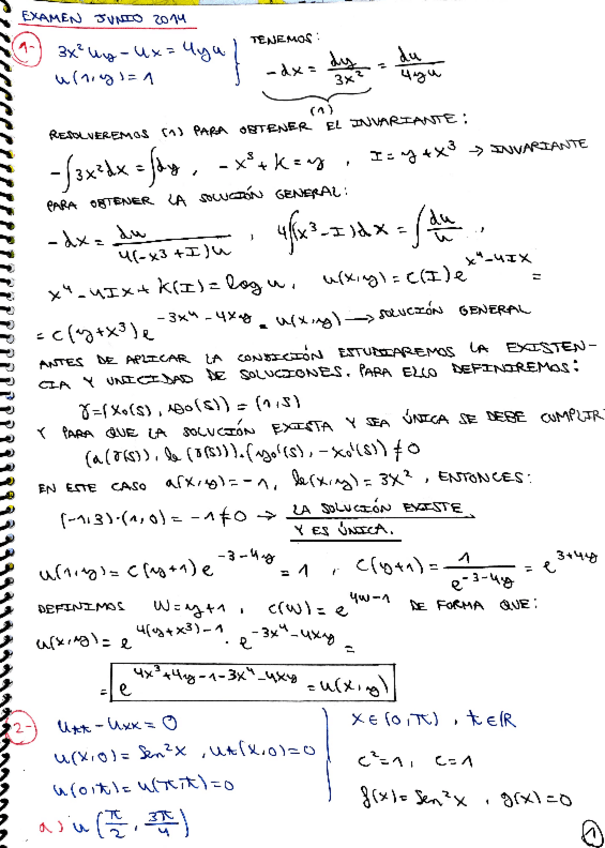 EXAMEN JUNIO 2014
1- 3x²uy - ux = 4yu
u(1,y) = 1
TENEMOS:
-dx = dy/3x² = du/4yu
(1)
RESOLVEREMOS (1) PARA OBTENER EL INVARIANTE:
-∫3x²dx = ∫dy, -x³ + k = y, I = y + x³ → INVARIANTE
PARA OBTENER LA SOLUCIÓN GENERAL:
-dx = du/4(-x³+I)u, 4∫(x³-I)dx = ∫du/u,
x⁴ - 4Ix + k(I) = log u, u(x,y) = C(I)e^(x⁴-4Ix) =
= C(y+x³)e^(-3x⁴-4xy) = u(x,y) → SOLUCIÓN GENERAL
ANTES DE APLICAR LA CONDICIÓN ESTUDIAREMOS LA EXISTEN-
CIA Y UNICIDAD DE SOLUCIONES. PARA ELLO DEFINIREMOS:
γ = (x₀(s), y₀(s)) = (1,s)
Y PARA QUE LA SOLUCIÓN EXISTA Y SEA ÚNICA SE DEBE CUMPLIR
(a(γ(s)), b(γ(s)))·(y₀'(s), -x₀'(s)) ≠ 0
EN ESTE CASO a(x,y) = -1, b(x,y) = 3x², ENTONCES:
(-1,3)·(1,0) = -1 ≠ 0 → LA SOLUCIÓN EXISTE
Y ES ÚNICA.
u(1,y) = C(y+1)e^(-3-4y) = 1, C(y+1) = 1/e^(-3-4y) = e^(3+4y)
DEFINIMOS W = y+1, C(W) = e^(4W-1) DE FORMA QUE:
u(x,y) = e^(4(y+x³)-1) · e^(-3x⁴-4xy) =
= e^(4x³+4y-1-3x⁴-4xy) = u(x,y)
2- utt - uxx = 0
u(x,0) = Sen²x, ut(x,0) = 0
u(0,t) = u(π,t) = 0
x ∈ (0,π), t ∈ ℝ
c² = 1, c = 1
f(x) = Sen²x, g(x) = 0
a) u(π/2, 3π/4)
1